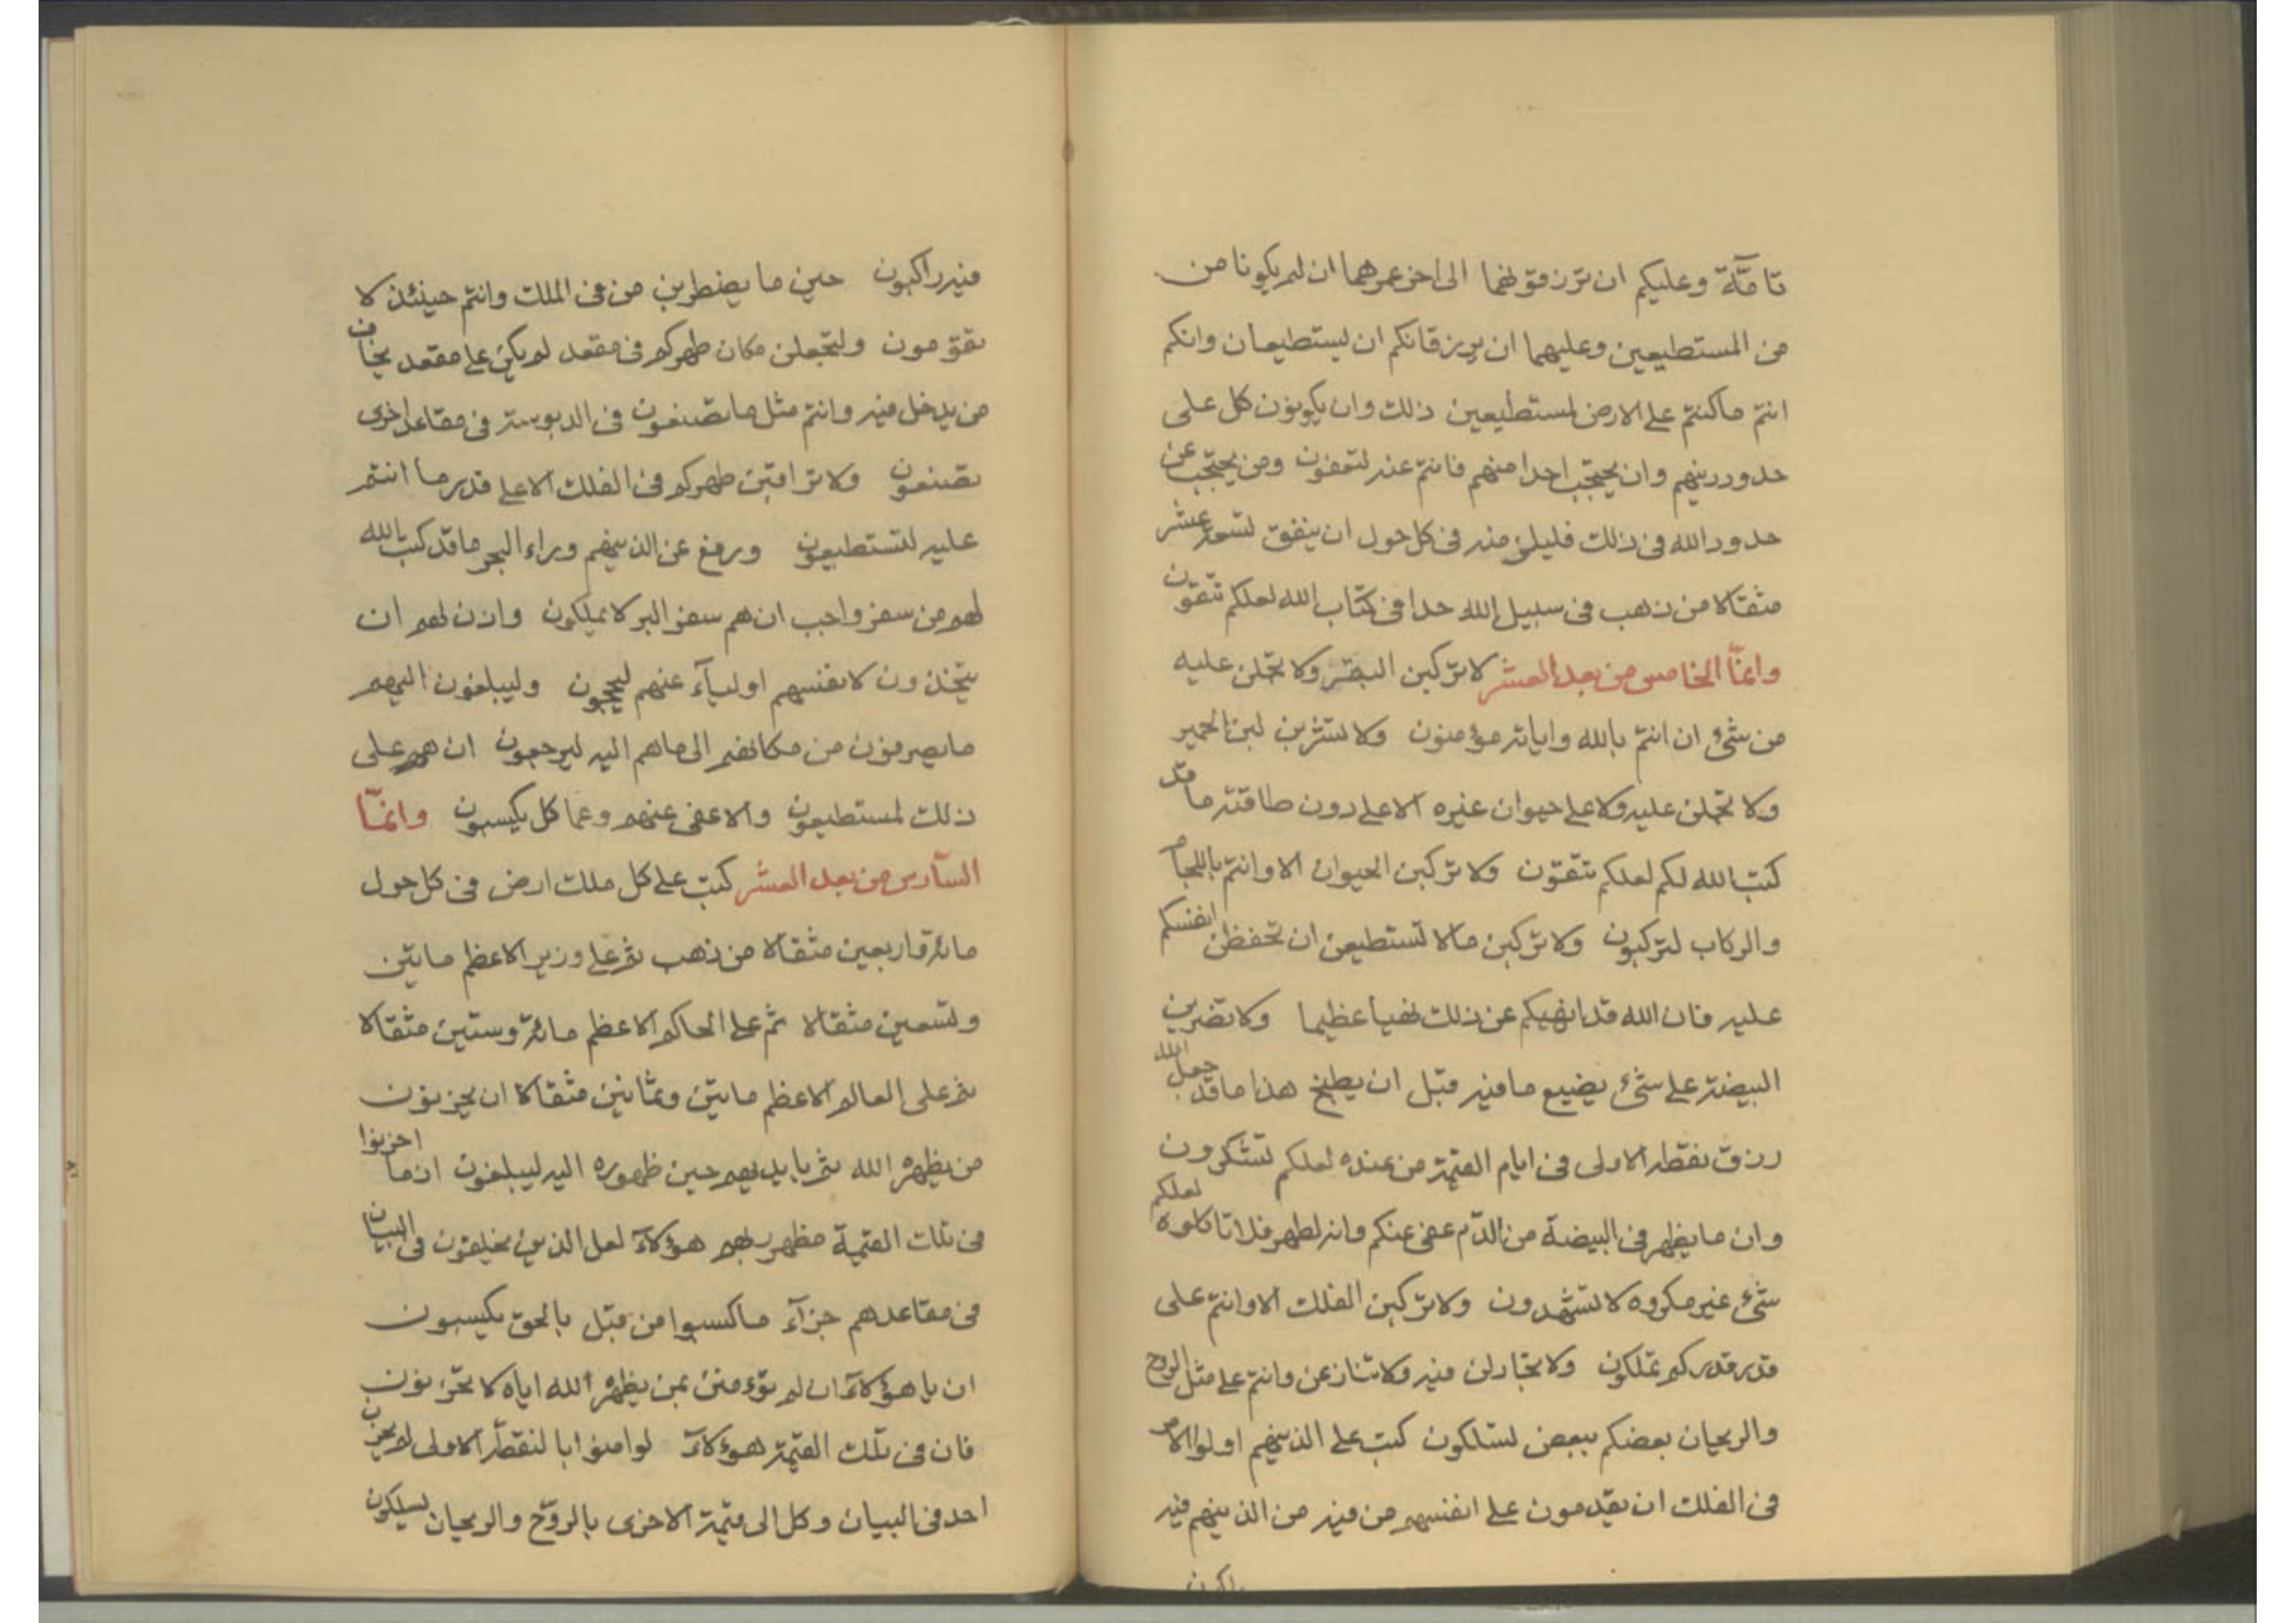 تامّة وعليكم ان ترزقونهما الى اخر عمرهما ان لم يكونا من
من المستطيعين وعليهما ان يرزقانكم ان يستطيعان وانكم
انتم ماكنتم على الارض لمستطيعين ذلك وان يكونون كل على
حدود دينهم وان يحتجب احدا منهم فانتم عنه لتعفون ومن يحتجب عن
حدود الله فى ذلك فليلزمنه فى كل حول ان ينفق تسعة عشر
مثقالا من ذهب فى سبيل الله حدا فى كتاب الله لعلكم تتقون
وانمّا الخامس من بعد العشر لا تركبن البقر ولا تحملن عليه
من شئ ان انتم بالله واياته مؤمنون ولا تشربن لبن الحمير
ولا تحملن عليه ولا على حيوان غيره الا على دون طاقته ما قد
كتب الله لكم لعلكم تتقون ولا تركبن الحيوان الا وانتم باللجام
والركاب لتركبون ولا تركبن مالا تستطيعن ان تحفظن انفسكم
عليه فان الله قد انهيكم عن ذلك نهيا عظيما ولا تضربن
البيضة على شئ يضيع ما فيه قبل ان يطبخ هذا ما قد جعل الله
رزق نقطة الاولى فى ايام القيمة من عنده لعلكم تشكرون
وان ما يظهر فى البيضة من الدّم عفى عنكم وانه لطهر فلا تاكلوه لعلكم
شئ غير مكروه لا تشهدون ولا تركبن الفلك الا وانتم على
قدر قدركم تملكون ولا تجادلن فيه ولا تنازعن وانتم على مثل الروح
والريحان بعضكم ببعض لتسلكون كتب على الذينهم اولوا الامر
فى الفلك ان يقدمون على انفسهم من فيه من الذينهم فيه
راكبون
فيه راكبون حين ما يضطربن من فى الفلك وانتم حينئذ لا
تقومون ولتجعلن مكان طهركم فى مقعد لم يكن على مقعد يخاف
من يدخل فيه وانتم مثل ما تصنعون فى الدبوسة فى مقاعد اخرى
تصنعون ولا تراقبن طهركم فى الفلك الا على قدر ما انتم
عليه لتستطيعون ورفع عن الذينهم وراء البحر ما قد كتب الله
لهم من سفر واجب ان هم سفر البر لا يملكون واذن لهم ان
يتخذون لانفسهم اولياء عنهم ليحجون وليبلغون اليهم
ما يصرفون من مكانهم الى ما هم اليه ليرجعون ان هم على
ذلك لمستطيعون والا عفى عنهم وعما كل يكسبون وانمّا
السّادس من بعد العشر كتب على كل ملك ارض فى كل حول
مائة واربعين مثقالا من ذهب ثم على وزير الاعظم مايتين
وتسعين مثقالا ثم على الحاكم الاعظم مائة وستين مثقالا
ثم على العالم الاعظم مايتين وثمانين مثقالا ان يحزنون
من يظهره الله ثم بايديهم حين ظهوره اليه ليبلغون اذ ما احزنوا
فى تلك القيمة مظهر ربهم هؤلاء لعل الذين يخلقون فى البيان
فى مقاعدهم جزاء ما كسبوا من قبل بالحق يكسبون
ان يا هؤلاء ان لم تؤمنن بمن يظهره الله اياه لا تحزنون
فان فى تلك القيمة هؤلاء لو امنوا بالنقطة الاولى لم يحزن
احد فى البيان وكل الى قيمة الاخرى بالروح والريحان ليسلكون